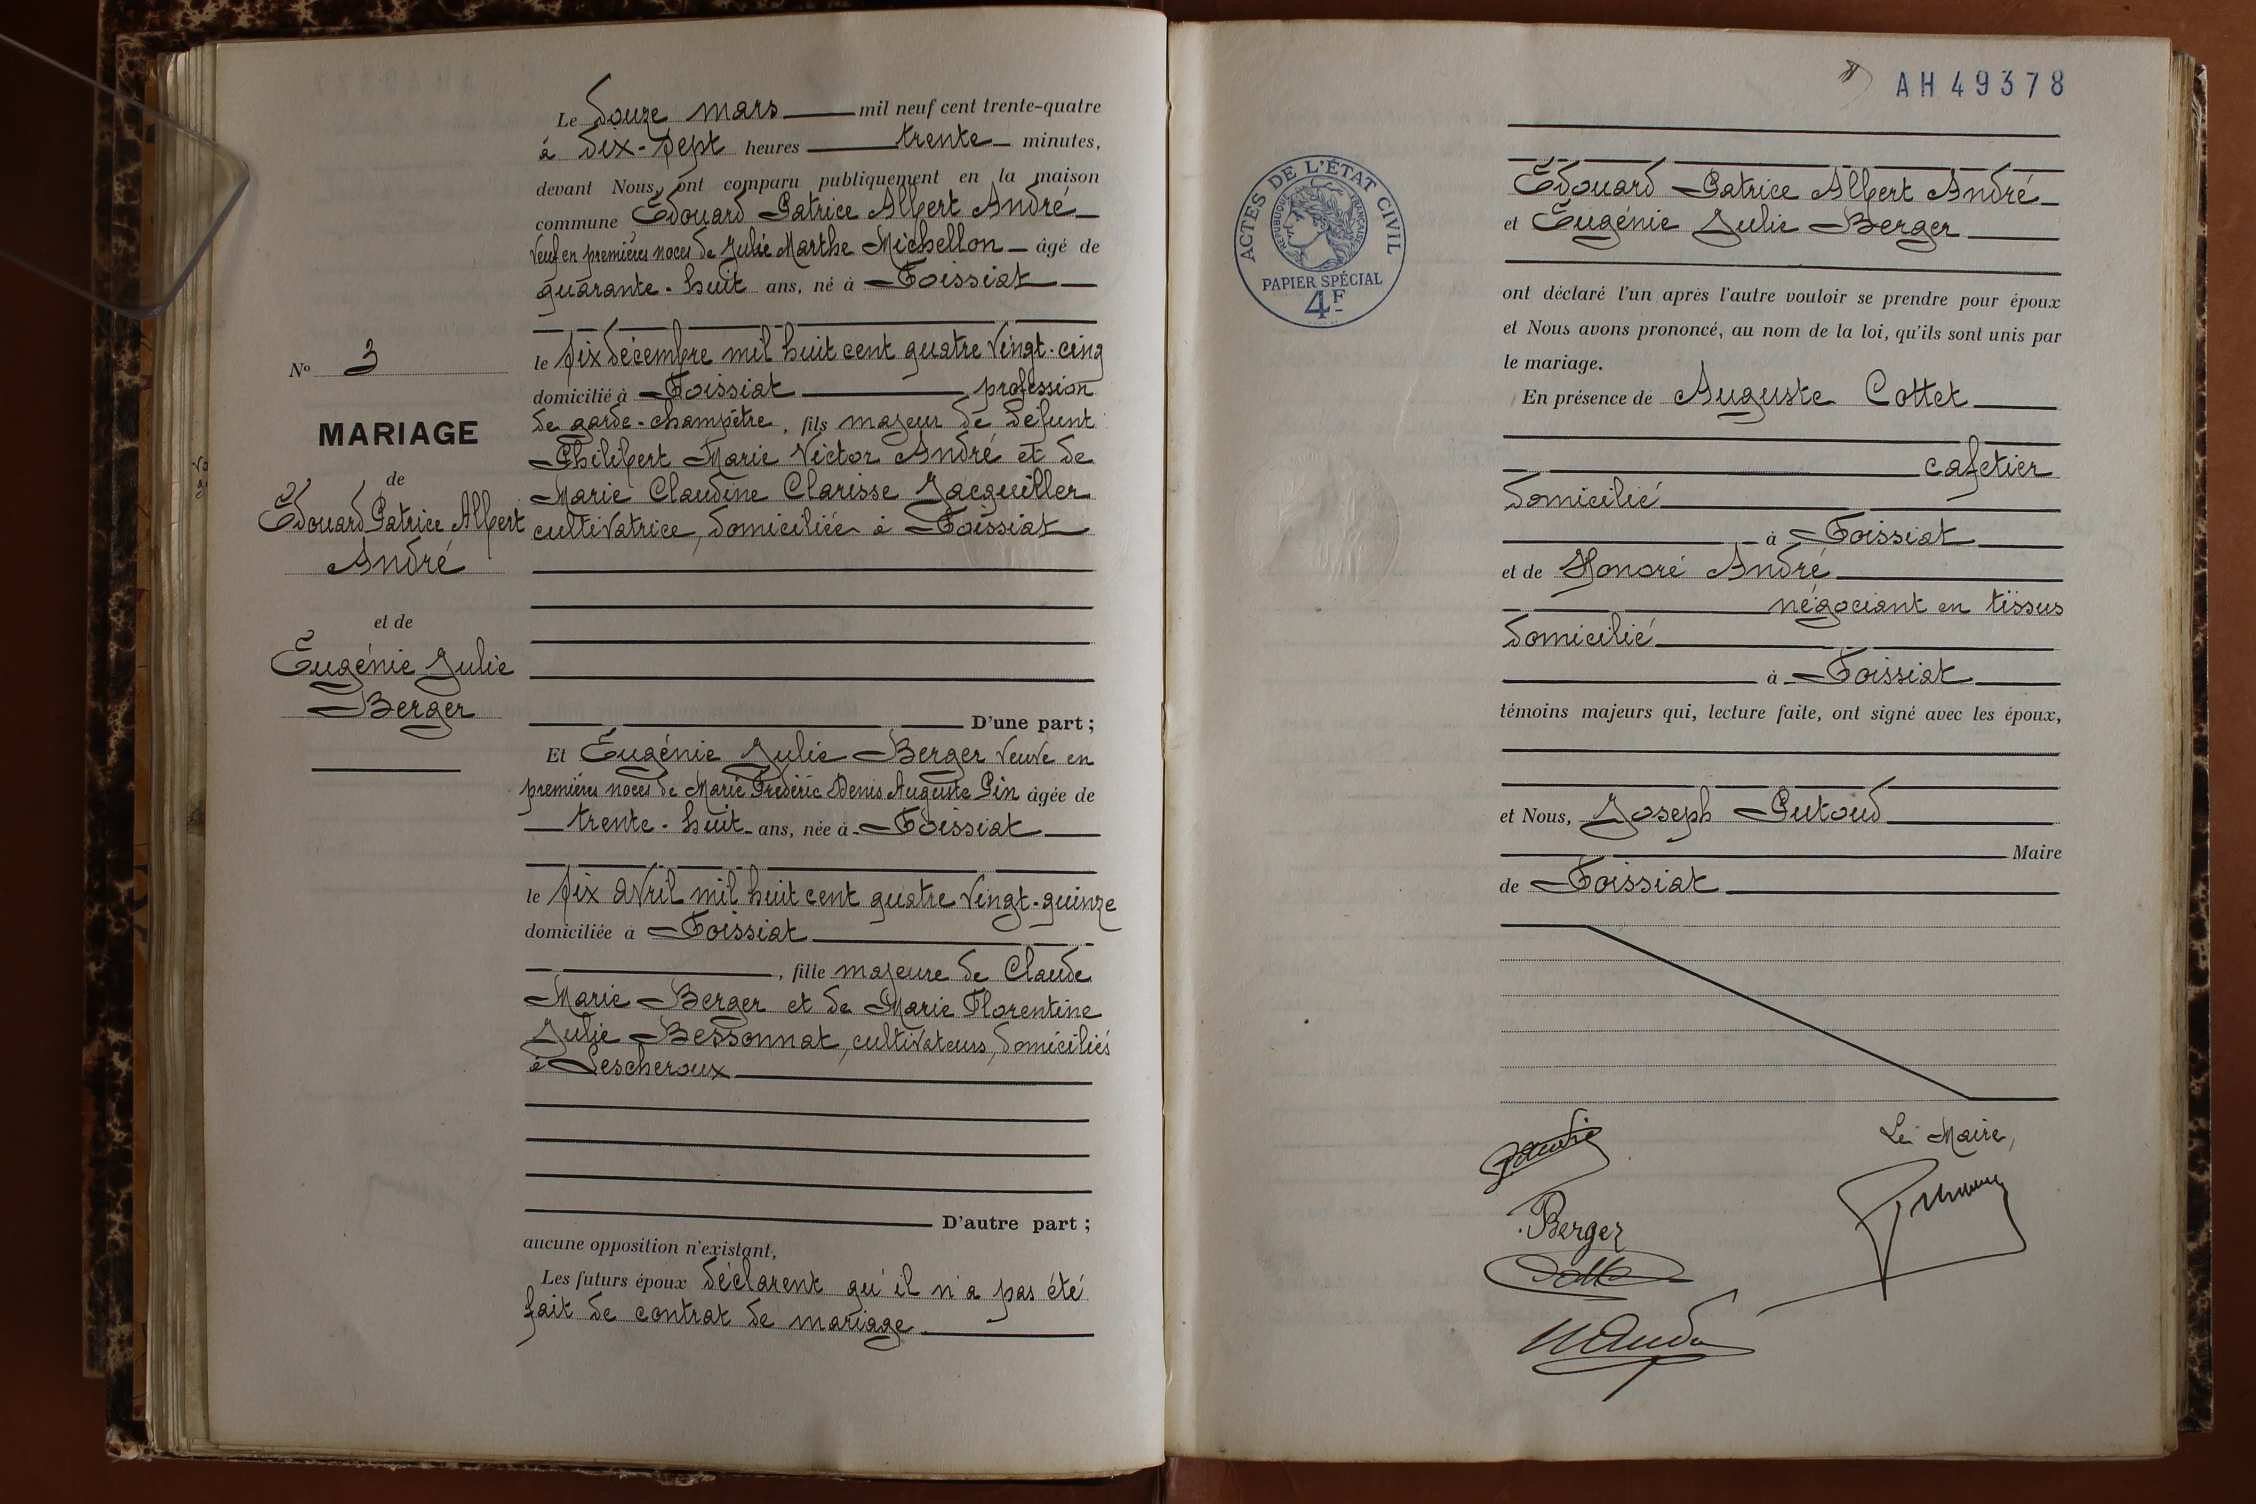 Le douze mars mil neuf cent trente-quatre
à dix-sept heures trente minutes,
devant Nous, ont comparu publiquement en la maison
commune Edouard Patrice Albert André
veuf en premières noces de Julie Marthe Michellon âgé de
quarante-huit ans, né à Foissiat
le six décembre mil huit cent quatre vingt-cinq
domicilié à Foissiat profession
de garde-champêtre, fils majeur de défunt
Philibert Marie Victor André et de
Marie Claudine Clarisse Jacquiller
cultivatrice, domiciliée à Foissiat
D'une part ;
Et Eugénie Julie Berger veuve en
premières noces de Marie Frédéric Denis Auguste Pin âgée de
trente-huit ans, née à Foissiat
le six avril mil huit cent quatre vingt-quinze
domiciliée à Foissiat
, fille majeure de Claude
Marie Berger et de Marie Florentine
Julie Bessonnat, cultivateurs, domiciliés
à Lescheroux
D'autre part ;
aucune opposition n'existant,
Les futurs époux déclarent qu'il n'a pas été
fait de contrat de mariage
No 3
MARIAGE
de
Edouard Patrice Albert
André
et de
Eugénie Julie
Berger
AH49378
ACTES DE L'ÉTAT CIVIL
RÉPUBLIQUE FRANÇAISE
PAPIER SPÉCIAL
4F
Edouard Patrice Albert André
et Eugénie Julie Berger
ont déclaré l'un après l'autre vouloir se prendre pour époux
et Nous avons prononcé, au nom de la loi, qu'ils sont unis par
le mariage.
En présence de Auguste Cottet
cafetier
domicilié
à Foissiat
et de Honoré André
négociant en tissus
domicilié
à Foissiat
témoins majeurs qui, lecture faite, ont signé avec les époux,
et Nous, Joseph Putoud
Maire
de Foissiat
Le Maire,
Berger